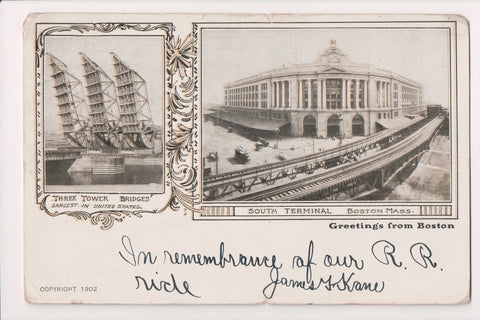 "THREE TOWER BRIDGES"
LARGEST IN UNITED STATES.
SOUTH TERMINAL BOSTON MASS.
Greetings from Boston
In remembrance of our R. R.
ride James F Kane
COPYRIGHT 1902